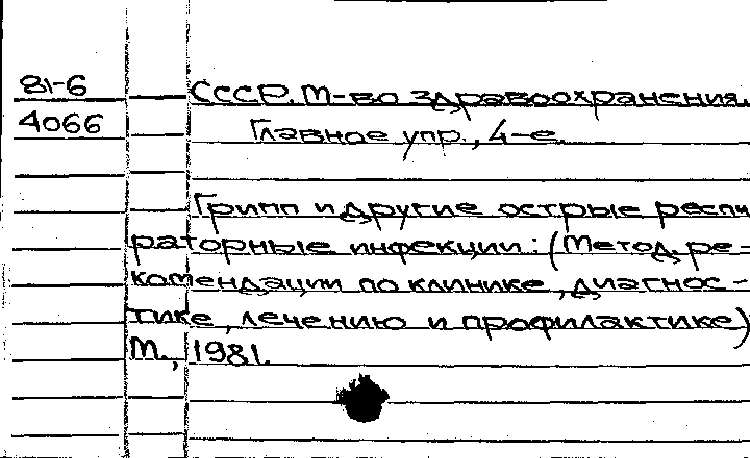 81-6
4066
СССР. М-во здравоохранения.
Главное упр., 4-е.
Грипп и другие острые респи
раторные инфекции: (Метод. ре-
комендации по клинике, диагнос-
тике, лечению и профилактике)
М., 1981.